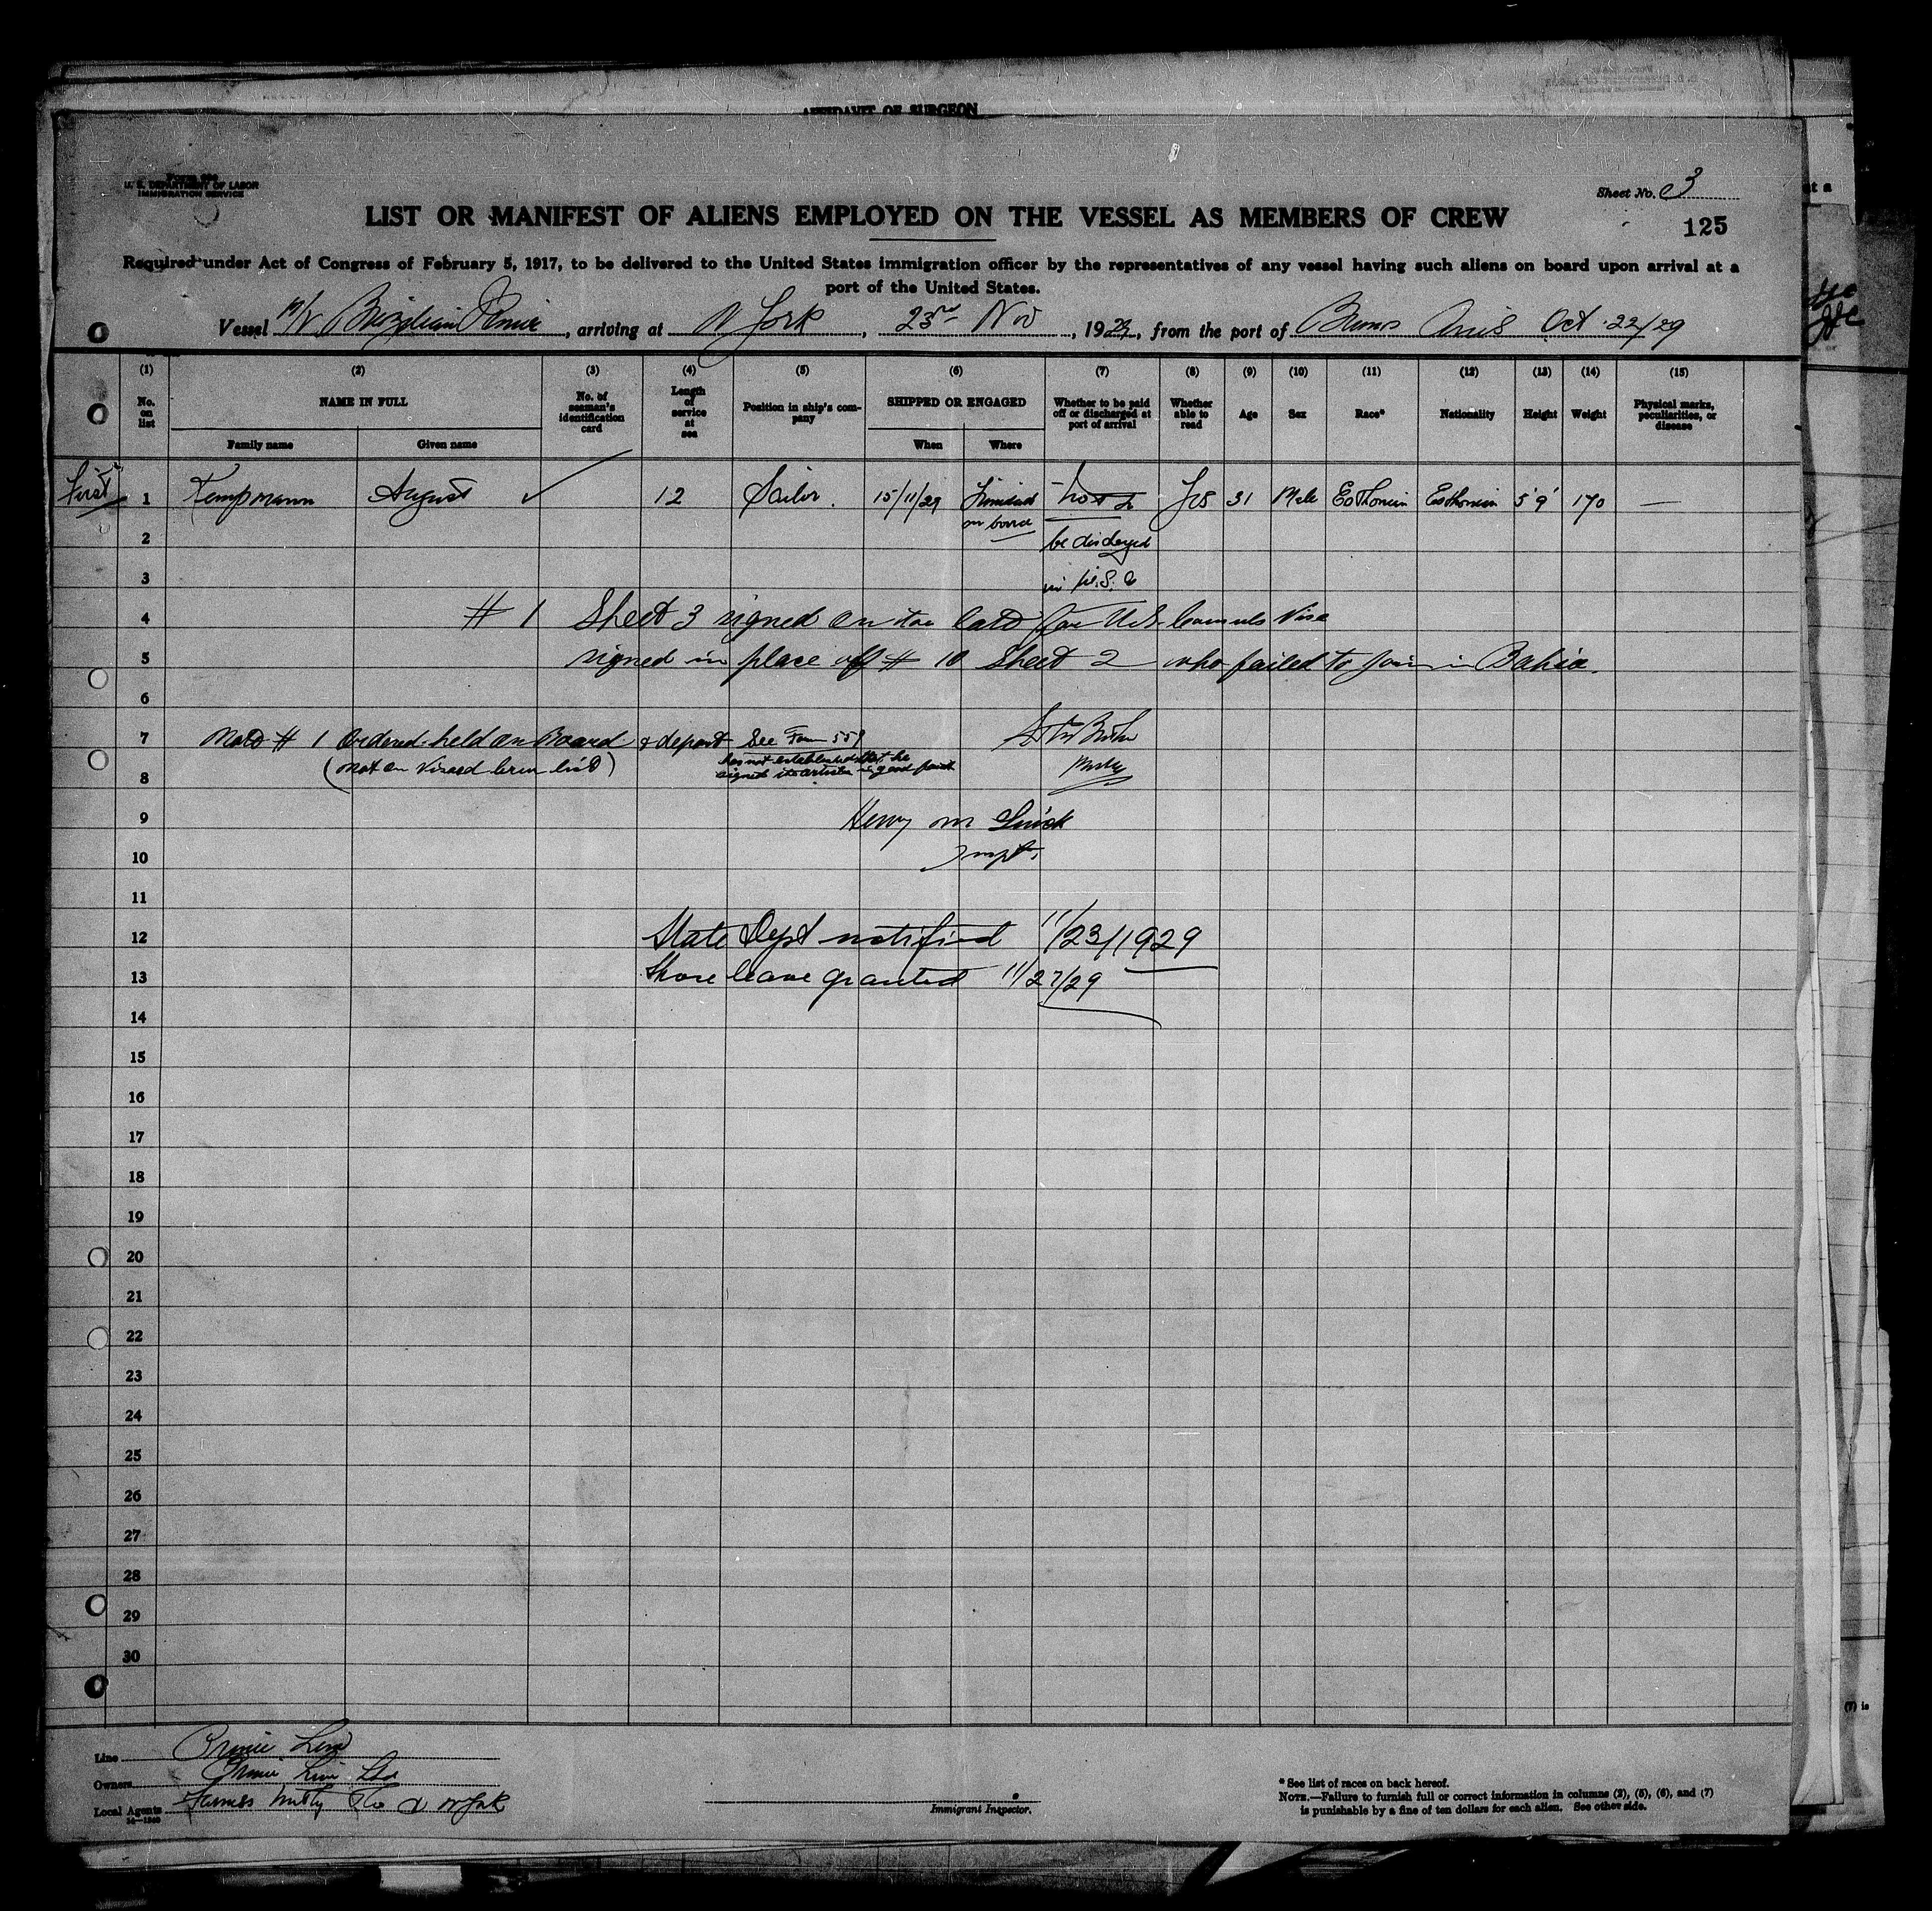 AFFIDAVIT OF SURGEON
U. S. DEPARTMENT OF LABOR
IMMIGRATION SERVICE
Sheet No. 3
LIST OR MANIFEST OF ALIENS EMPLOYED ON THE VESSEL AS MEMBERS OF CREW
125
Required under Act of Congress of February 5, 1917, to be delivered to the United States immigration officer by the representatives of any vessel having such aliens on board upon arrival at a
port of the United States.
Vessel M/V Brazilian Prince, arriving at N York, 23rd Nov, 1929, from the port of Buenos Aires Oct 22/29
(1) (2) (3) (4) (5) (6) (7) (8) (9) (10) (11) (12) (13) (14) (15)
No. on list
NAME IN FULL
Family name
Given name
No. of seaman's identification card
Length of service at sea
Position in ship's company
SHIPPED OR ENGAGED
When
Where
Whether to be paid off or discharged at port of arrival
Whether able to read
Age
Sex
Race*
Nationality
Height
Weight
Physical marks, peculiarities, or disease
First 1 Kempmann August ✓ 12 Sailor. 15/11/29 Trinidad Not to Yes 31 Male Esthonian Esthonian 5'9" 170 —
on board
2 be discharged
3 in U.S.A
4 # 1 Sheet 3 signed on too late for U.S. Consuls Visa
5 signed in place off # 10 Sheet 2 who failed to join in Bahia.
6
7 Note # 1 Ordered held on Board & deport See Form 559
8 (not on Visaed Crew list) has not established that he
signed its articles in good faith
Master
9 Henry M
10 Inspt.
11
12 State Dept notified 11/23/1929
13 Shore leave granted 11/27/29
14
15
16
17
18
19
20
21
22
23
24
25
26
27
28
29
30
Line Prince Line
Owners Prince Line Ltd
Local Agents Furness Withy & Co N York
14—1240
Immigrant Inspector.
* See list of races on back hereof.
NOTE.—Failure to furnish full or correct information in columns (2), (5), (6), and (7)
is punishable by a fine of ten dollars for each alien. See other side.
(7) is